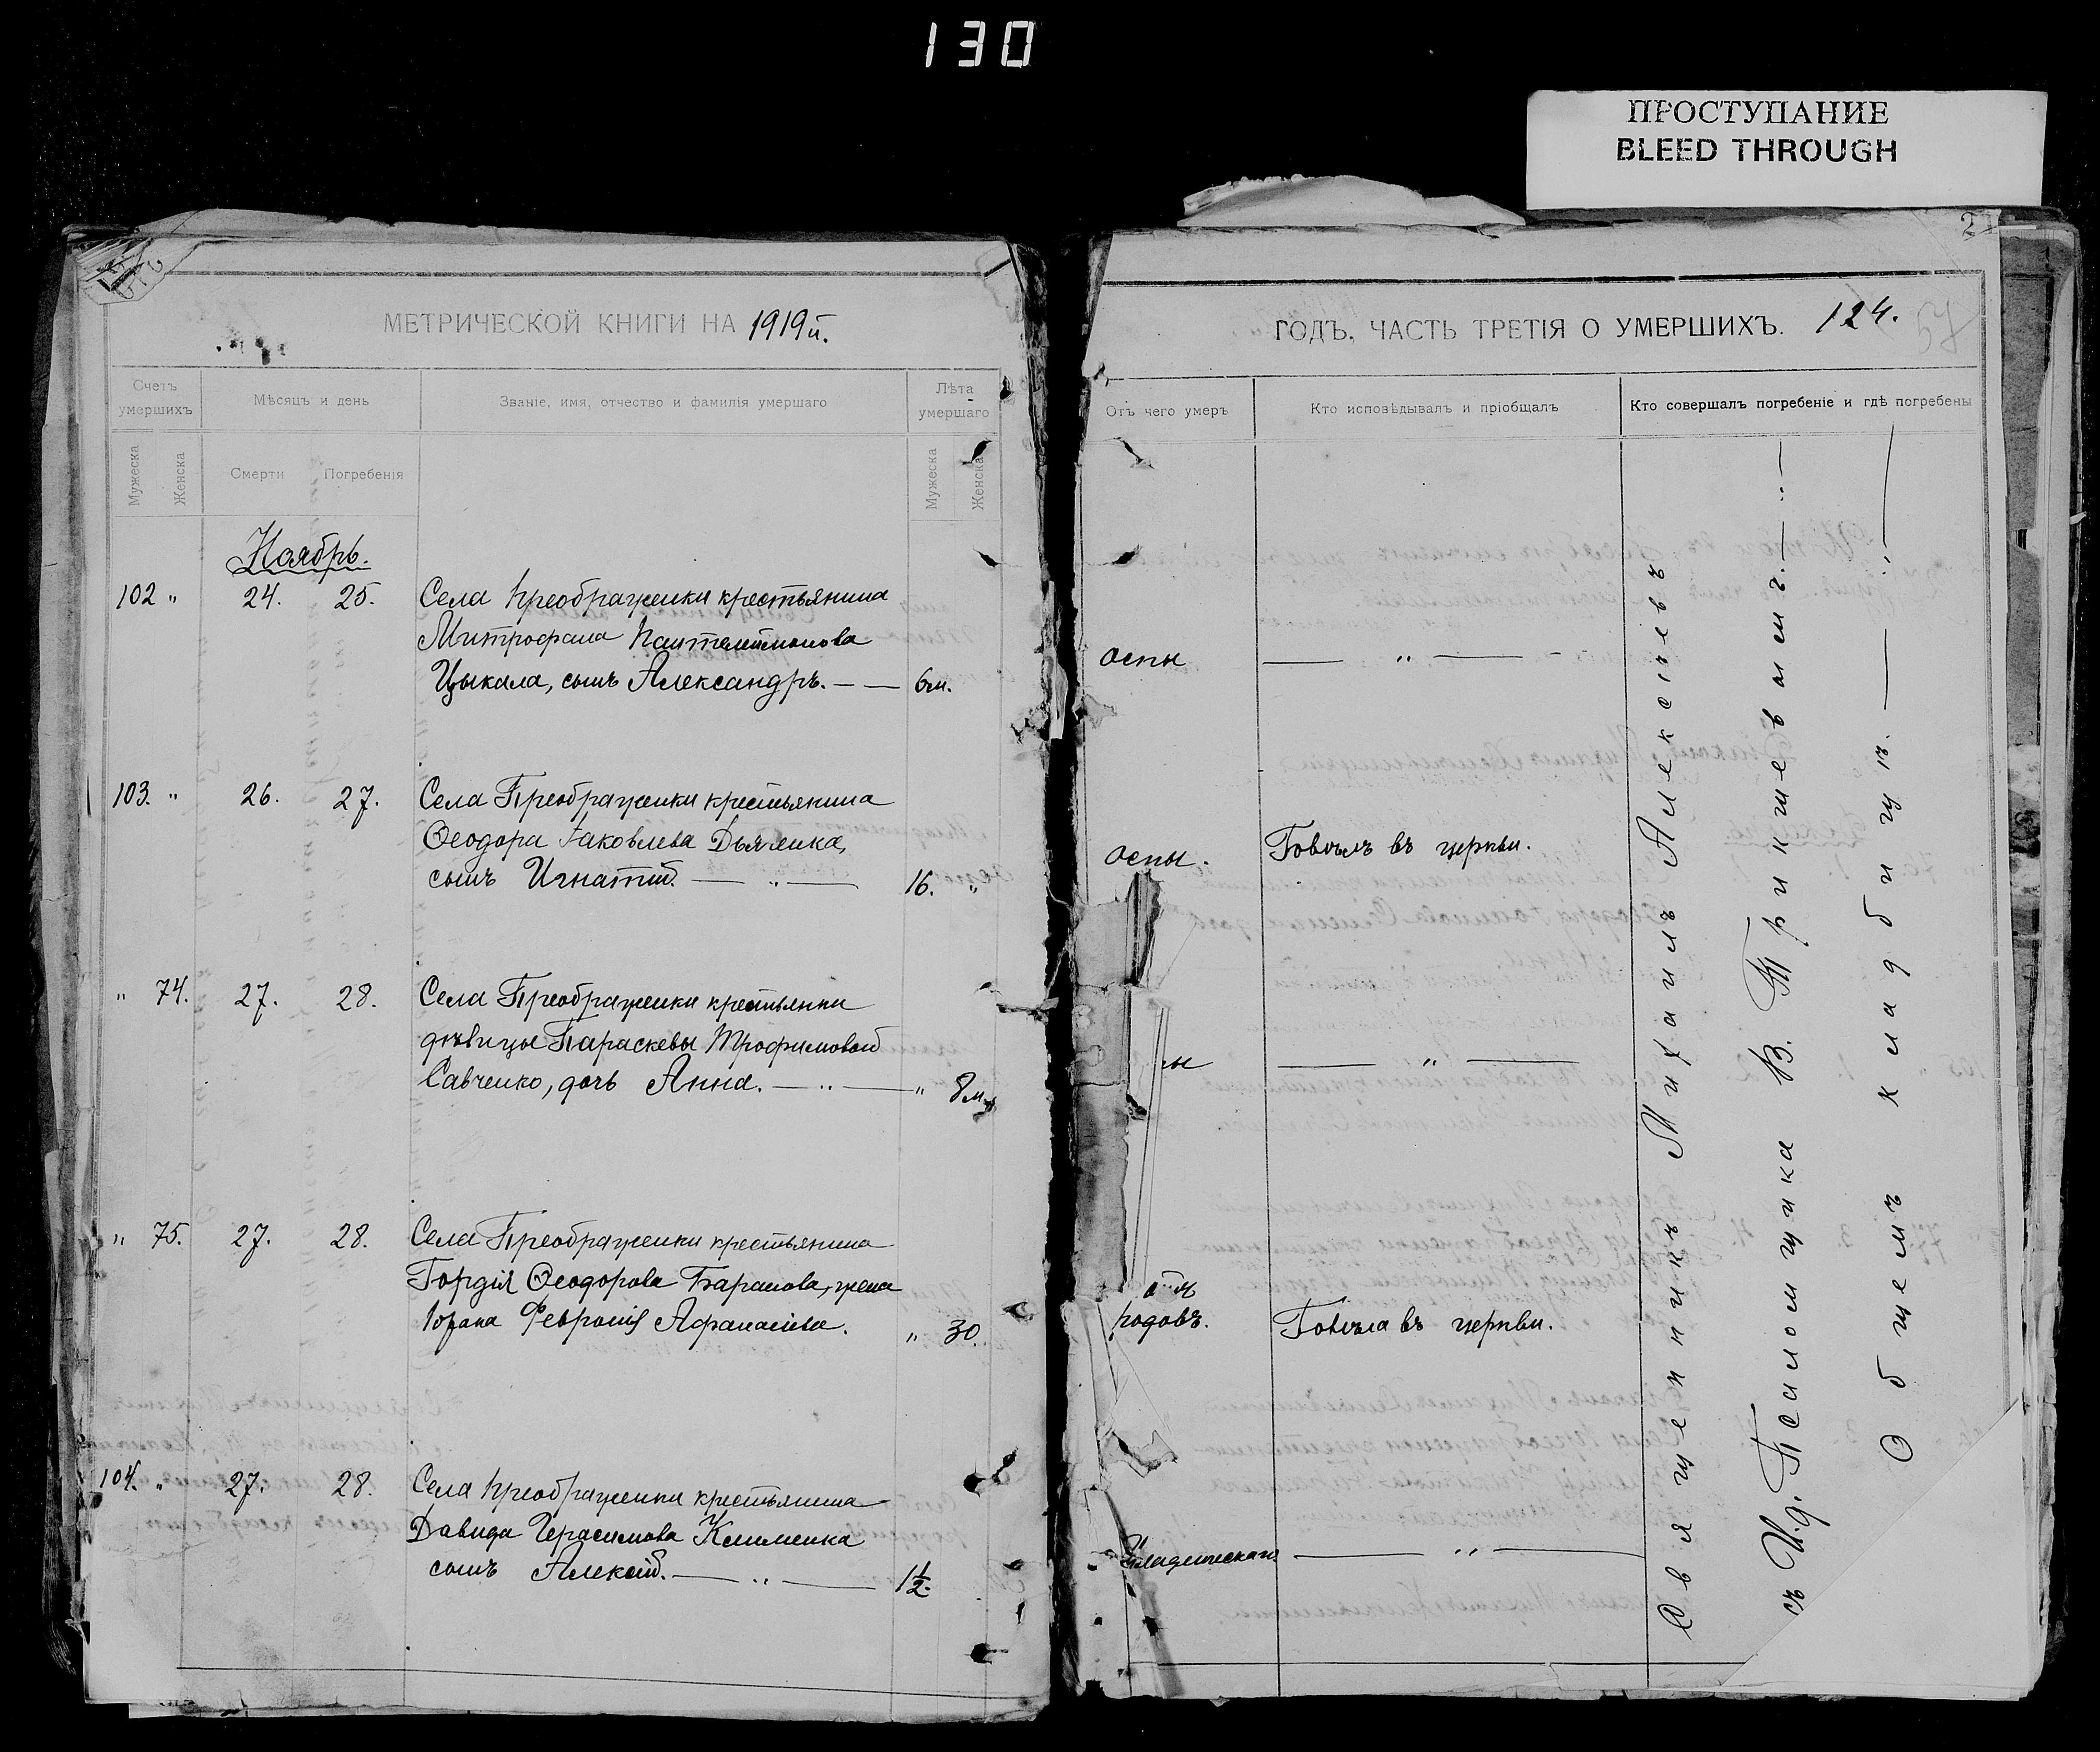 130
ПРОСТУПАНИЕ
BLEED THROUGH
МЕТРИЧЕСКОЙ КНИГИ НА 1919й.
Счетъ умершихъ
Мѣсяцъ и день
Званіе, имя, отчество и фамилія умершаго
Лѣта умершаго
Мужеска
Женска
Смерти
Погребенія
Мужеска
Женска
Ноябрь.
102 " 24. 25. Села Преображенки крестьянина
Митрофана Пантелеимонова
Цыкала, сынъ Александръ. — — 6м.
103. " 26. 27. Села Преображенки крестьянина
Ѳеодора Іаковлева Дьяченка,
сынъ Игнатій. — " — 16. "
" 74. 27. 28. Села Преображенки крестьянки
дѣвицы Параскевы Трофимовой
Савченко, дочь Анна. — " — " 8м.
" 75. 27. 28. Села Преображенки крестьянина
Гордія Ѳеодорова Баранова, жена
Февронія Афанасіева. " 30.
104. " 27. 28. Села Преображенки крестьянина
Давида Герасимова Клименка
сынъ Алексій. — " — 1½.
2
ГОДЪ, ЧАСТЬ ТРЕТІЯ О УМЕРШИХЪ. 124.
Отъ чего умеръ
Кто исповѣдывалъ и пріобщалъ
Кто совершалъ погребеніе и гдѣ погребены
оспы — " —
оспы. Говѣлъ въ церкви.
ы — " —
родовъ. Говѣла въ церкви.
— " —
Священникъ Михаилъ Алексѣевъ
съ И.д. Псаломщика В. Тришевымъ. — " —
Общемъ кладбищѣ. — " —